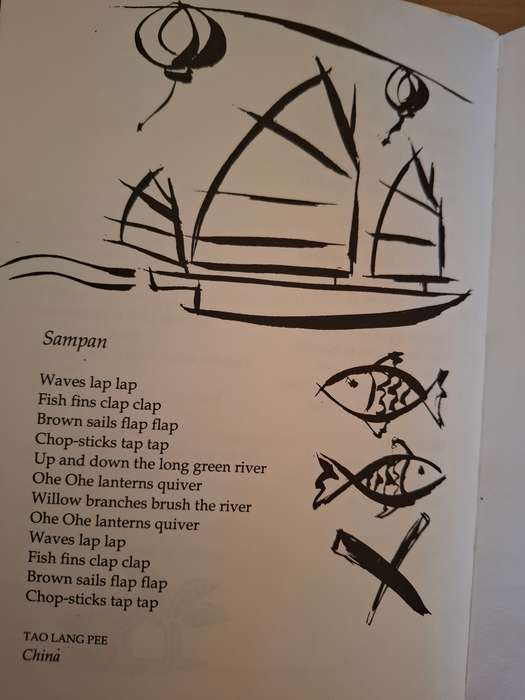 Sampan
Waves lap lap
Fish fins clap clap
Brown sails flap flap
Chop-sticks tap tap
Up and down the long green river
Ohe Ohe lanterns quiver
Willow branches brush the river
Ohe Ohe lanterns quiver
Waves lap lap
Fish fins clap clap
Brown sails flap flap
Chop-sticks tap tap
TAO LANG PEE
China